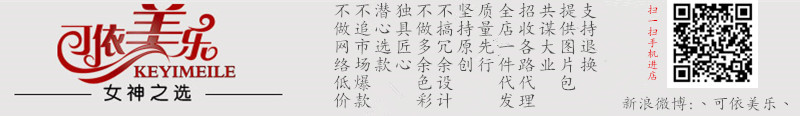 可依美乐
KEYIMEILE
女神之选
不做网络低价
不追市场爆款
潜心选款
独具匠心
不做多余色彩
不搞冗余设计
坚持原创
质量先行
全店一件代发
招收各路代理
共谋大业
提供图片包
支持退换
扫一扫手机进店
新浪微博:、可依美乐、